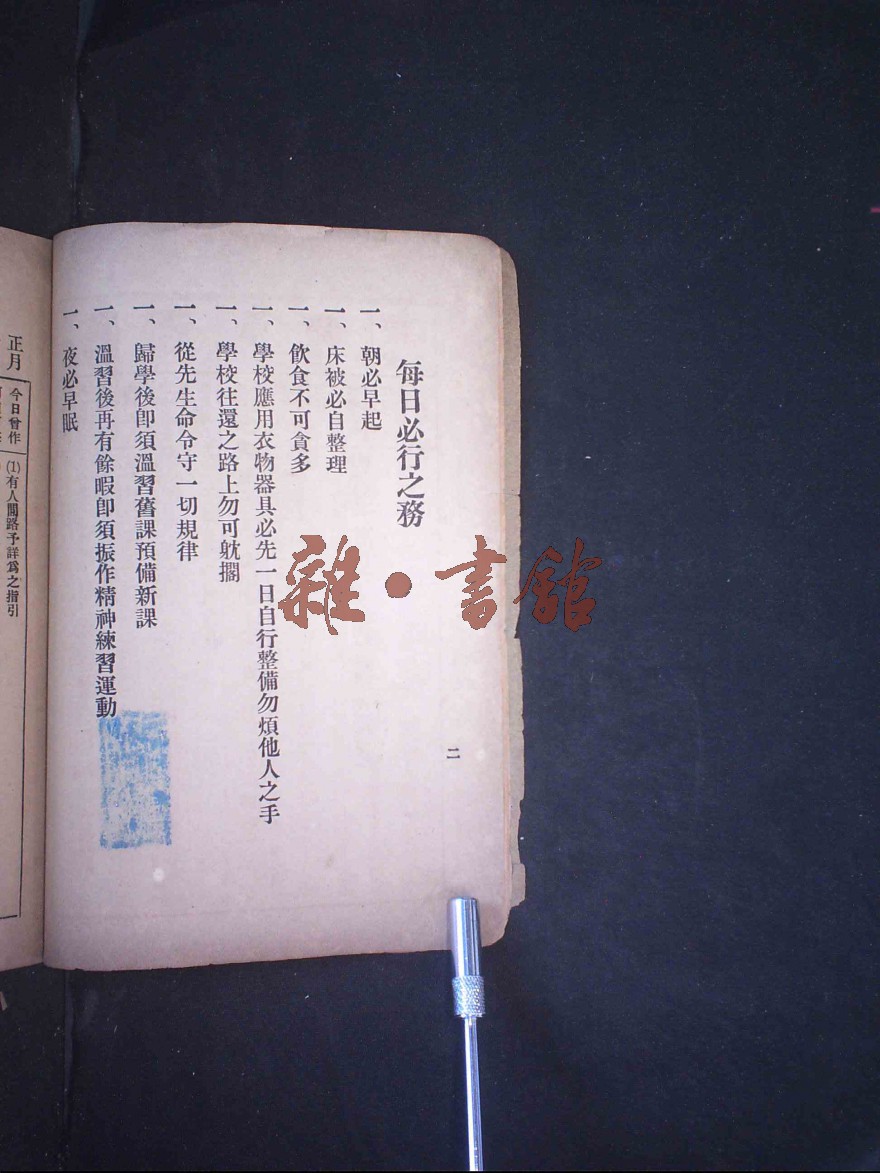 每日必行之務
一、朝必早起
一、床被必自整理
一、飲食不可貪多
一、學校應用衣物器具必先一日自行整備勿煩他人之手
一、學校往還之路上勿可躭擱
一、從先生命令守一切規律
一、歸學後卽須溫習舊課預備新課
一、溫習後再有餘暇卽須振作精神練習運動
一、夜必早眠
二
正月
今日曾作
(1)有人問路予詳爲之指引
雜·書館